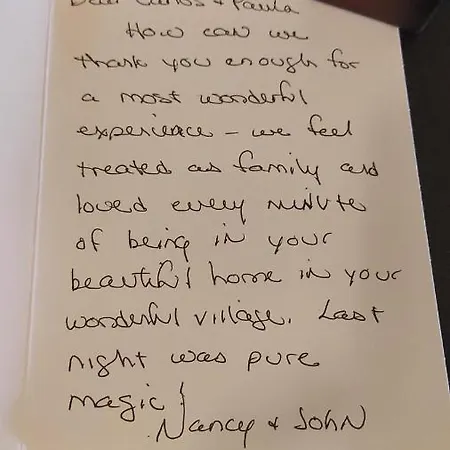 Dear Carlos & Paula
How can we
thank you enough for
a most wonderful
experience - we feel
treated as family and
loved every minute
of being in your
beautiful home in your
wonderful village. Last
night was pure
magic!
Nancy & John